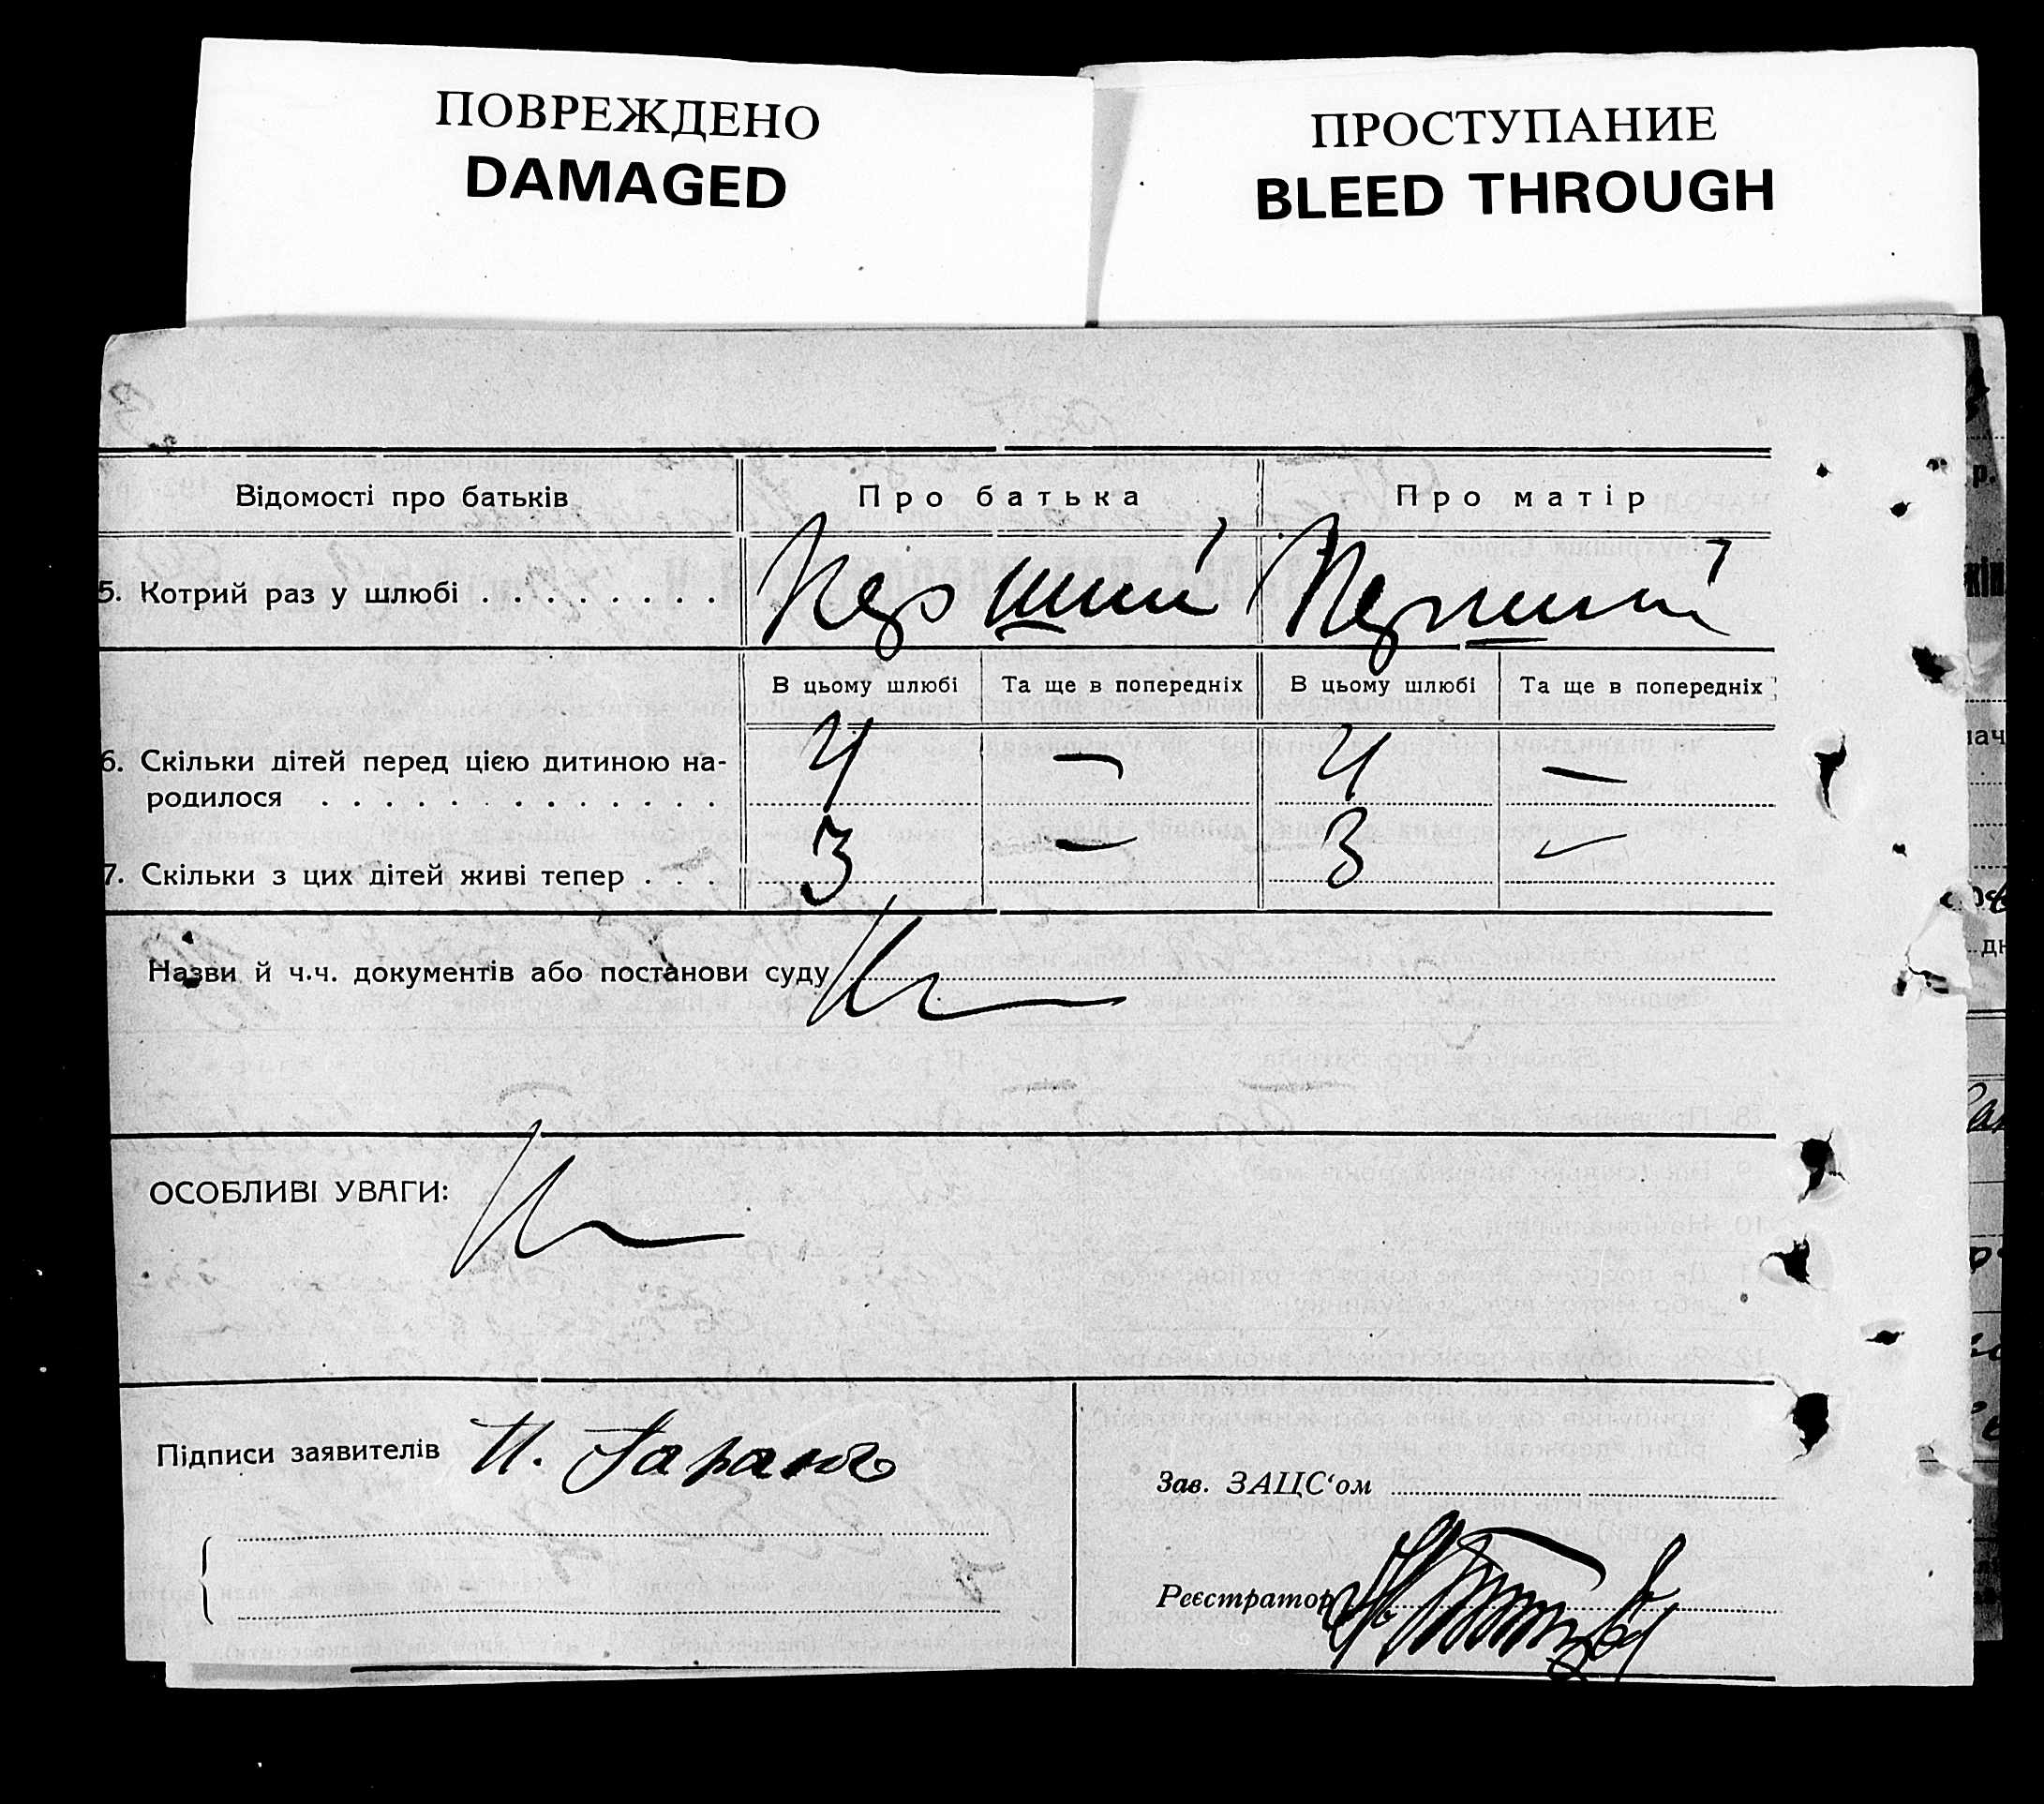 ПОВРЕЖДЕНО
DAMAGED
ПРОСТУПАНИЕ
BLEED THROUGH
Відомості про батьків
Про батька
Про матір
5. Котрий раз у шлюбі . . . . . . . .
Перший
Перший
В цьому шлюбі
Та ще в попередніх
В цьому шлюбі
Та ще в попередніх
6. Скільки дітей перед цією дитиною на-
родилося . . . . . . . . . . . . .
4
—
4
—
7. Скільки з цих дітей живі тепер . . .
3
—
3
—
Назви й ч.ч. документів або постанови суду
ОСОБЛИВІ УВАГИ:
Підписи заявителів
Зав. ЗАЦС‘ом
Реєстратор